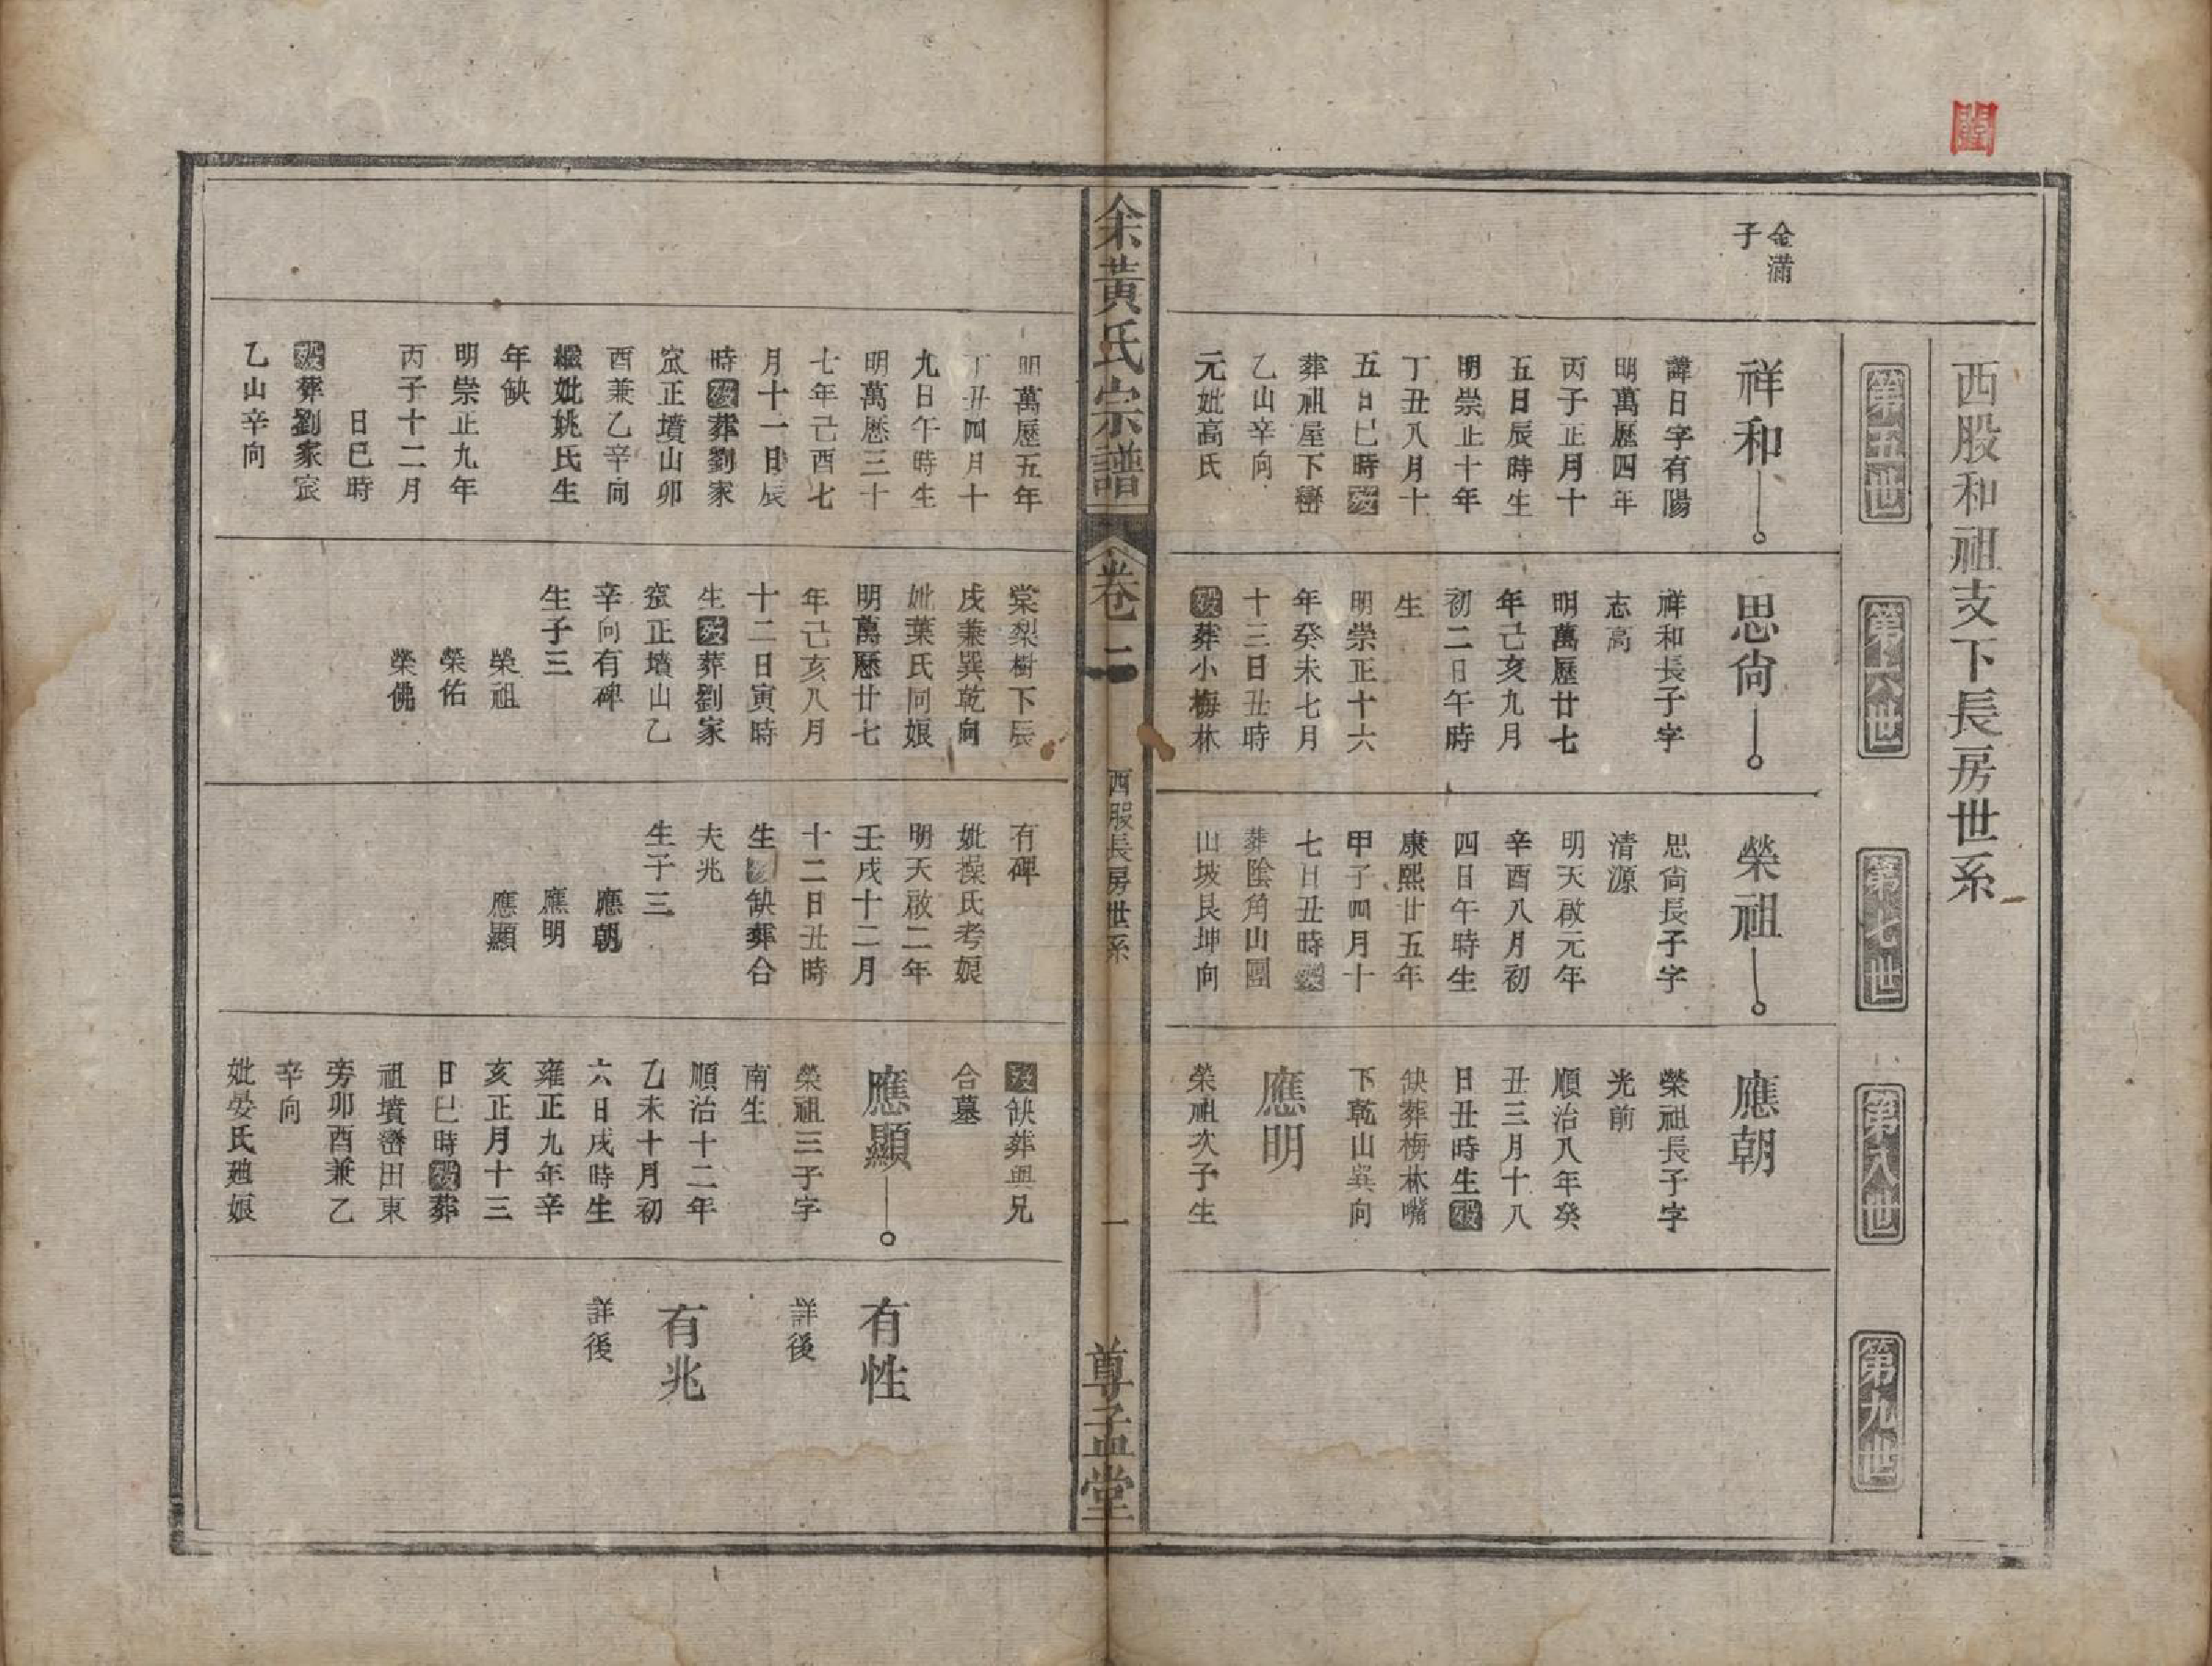 西股和祖支下長房世系
第五世
第六世
第七世
第八世
第九世
金滿
子
祥和
諱日字有陽
明萬歷四年
丙子正月十
五日辰時生
明崇正十年
丁丑八月十
五日巳時歿
葬祖屋下巒
乙山辛向
元妣高氏
思尙
祥和長子字
志高
明萬歷廿七
年己亥九月
初二日午時
生
明崇正十六
年癸未七月
十三日丑時
歿葬小梅林
榮祖
思尙長子字
清源
明天啟元年
辛酉八月初
四日午時生
康熙廿五年
甲子四月十
七日丑時歿
葬陰角山團
山坡艮坤向
應朝
榮祖長子字
光前
順治八年癸
丑三月十八
日丑時生歿
缺葬梅林嘴
下乾山巽向
應明
榮祖次子生
余黃氏宗譜
卷二
西股長房世系
一
尊孟堂
明萬歷五年
丁丑四月十
九日午時生
明萬歷三十
七年己酉七
月十一日辰
時歿葬劉家
窊正墳山卯
酉兼乙辛向
繼妣姚氏生
年缺
明崇正九年
丙子十二月
日巳時
歿葬劉家窊
乙山辛向
棠梨樹下辰
戌兼巽乾向
妣葉氏同娘
明萬歷廿七
年己亥八月
十二日寅時
生歿葬劉家
窊正墳山乙
辛向有碑
生子三
榮祖
榮佑
榮佛
有碑
妣操氏考娘
明天啟二年
壬戌十二月
十二日丑時
生歿缺葬合
夫兆
生子三
應朝
應明
應顯
歿缺葬與兄
合墓
應顯
榮祖三子字
南生
順治十二年
乙未十月初
六日戌時生
雍正九年辛
亥正月十三
日巳時歿葬
祖墳巒田東
旁卯酉兼乙
辛向
妣晏氏娘
有性
詳後
有兆
詳後